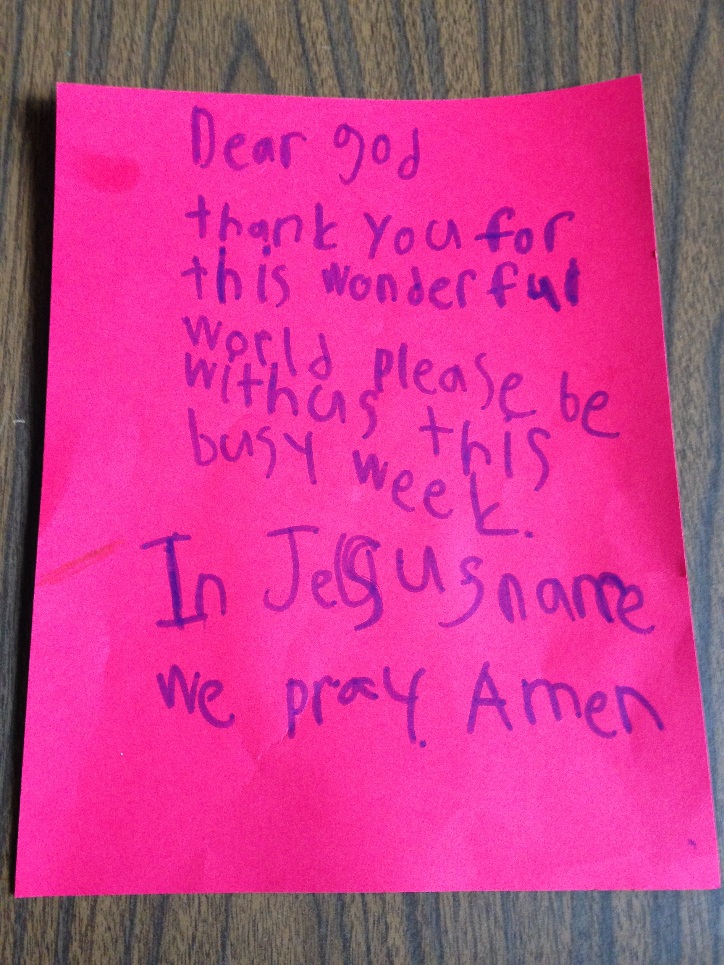 Dear god
thank you for
this wonderful
world please be
with us this
busy week.
In Jesus name
we pray. Amen